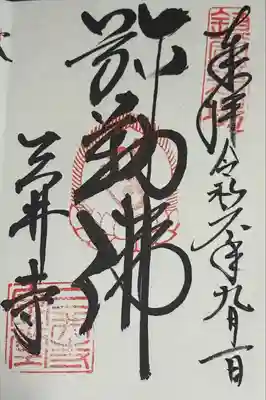 奉拝 令和年九月一日
弥勒佛
三井寺